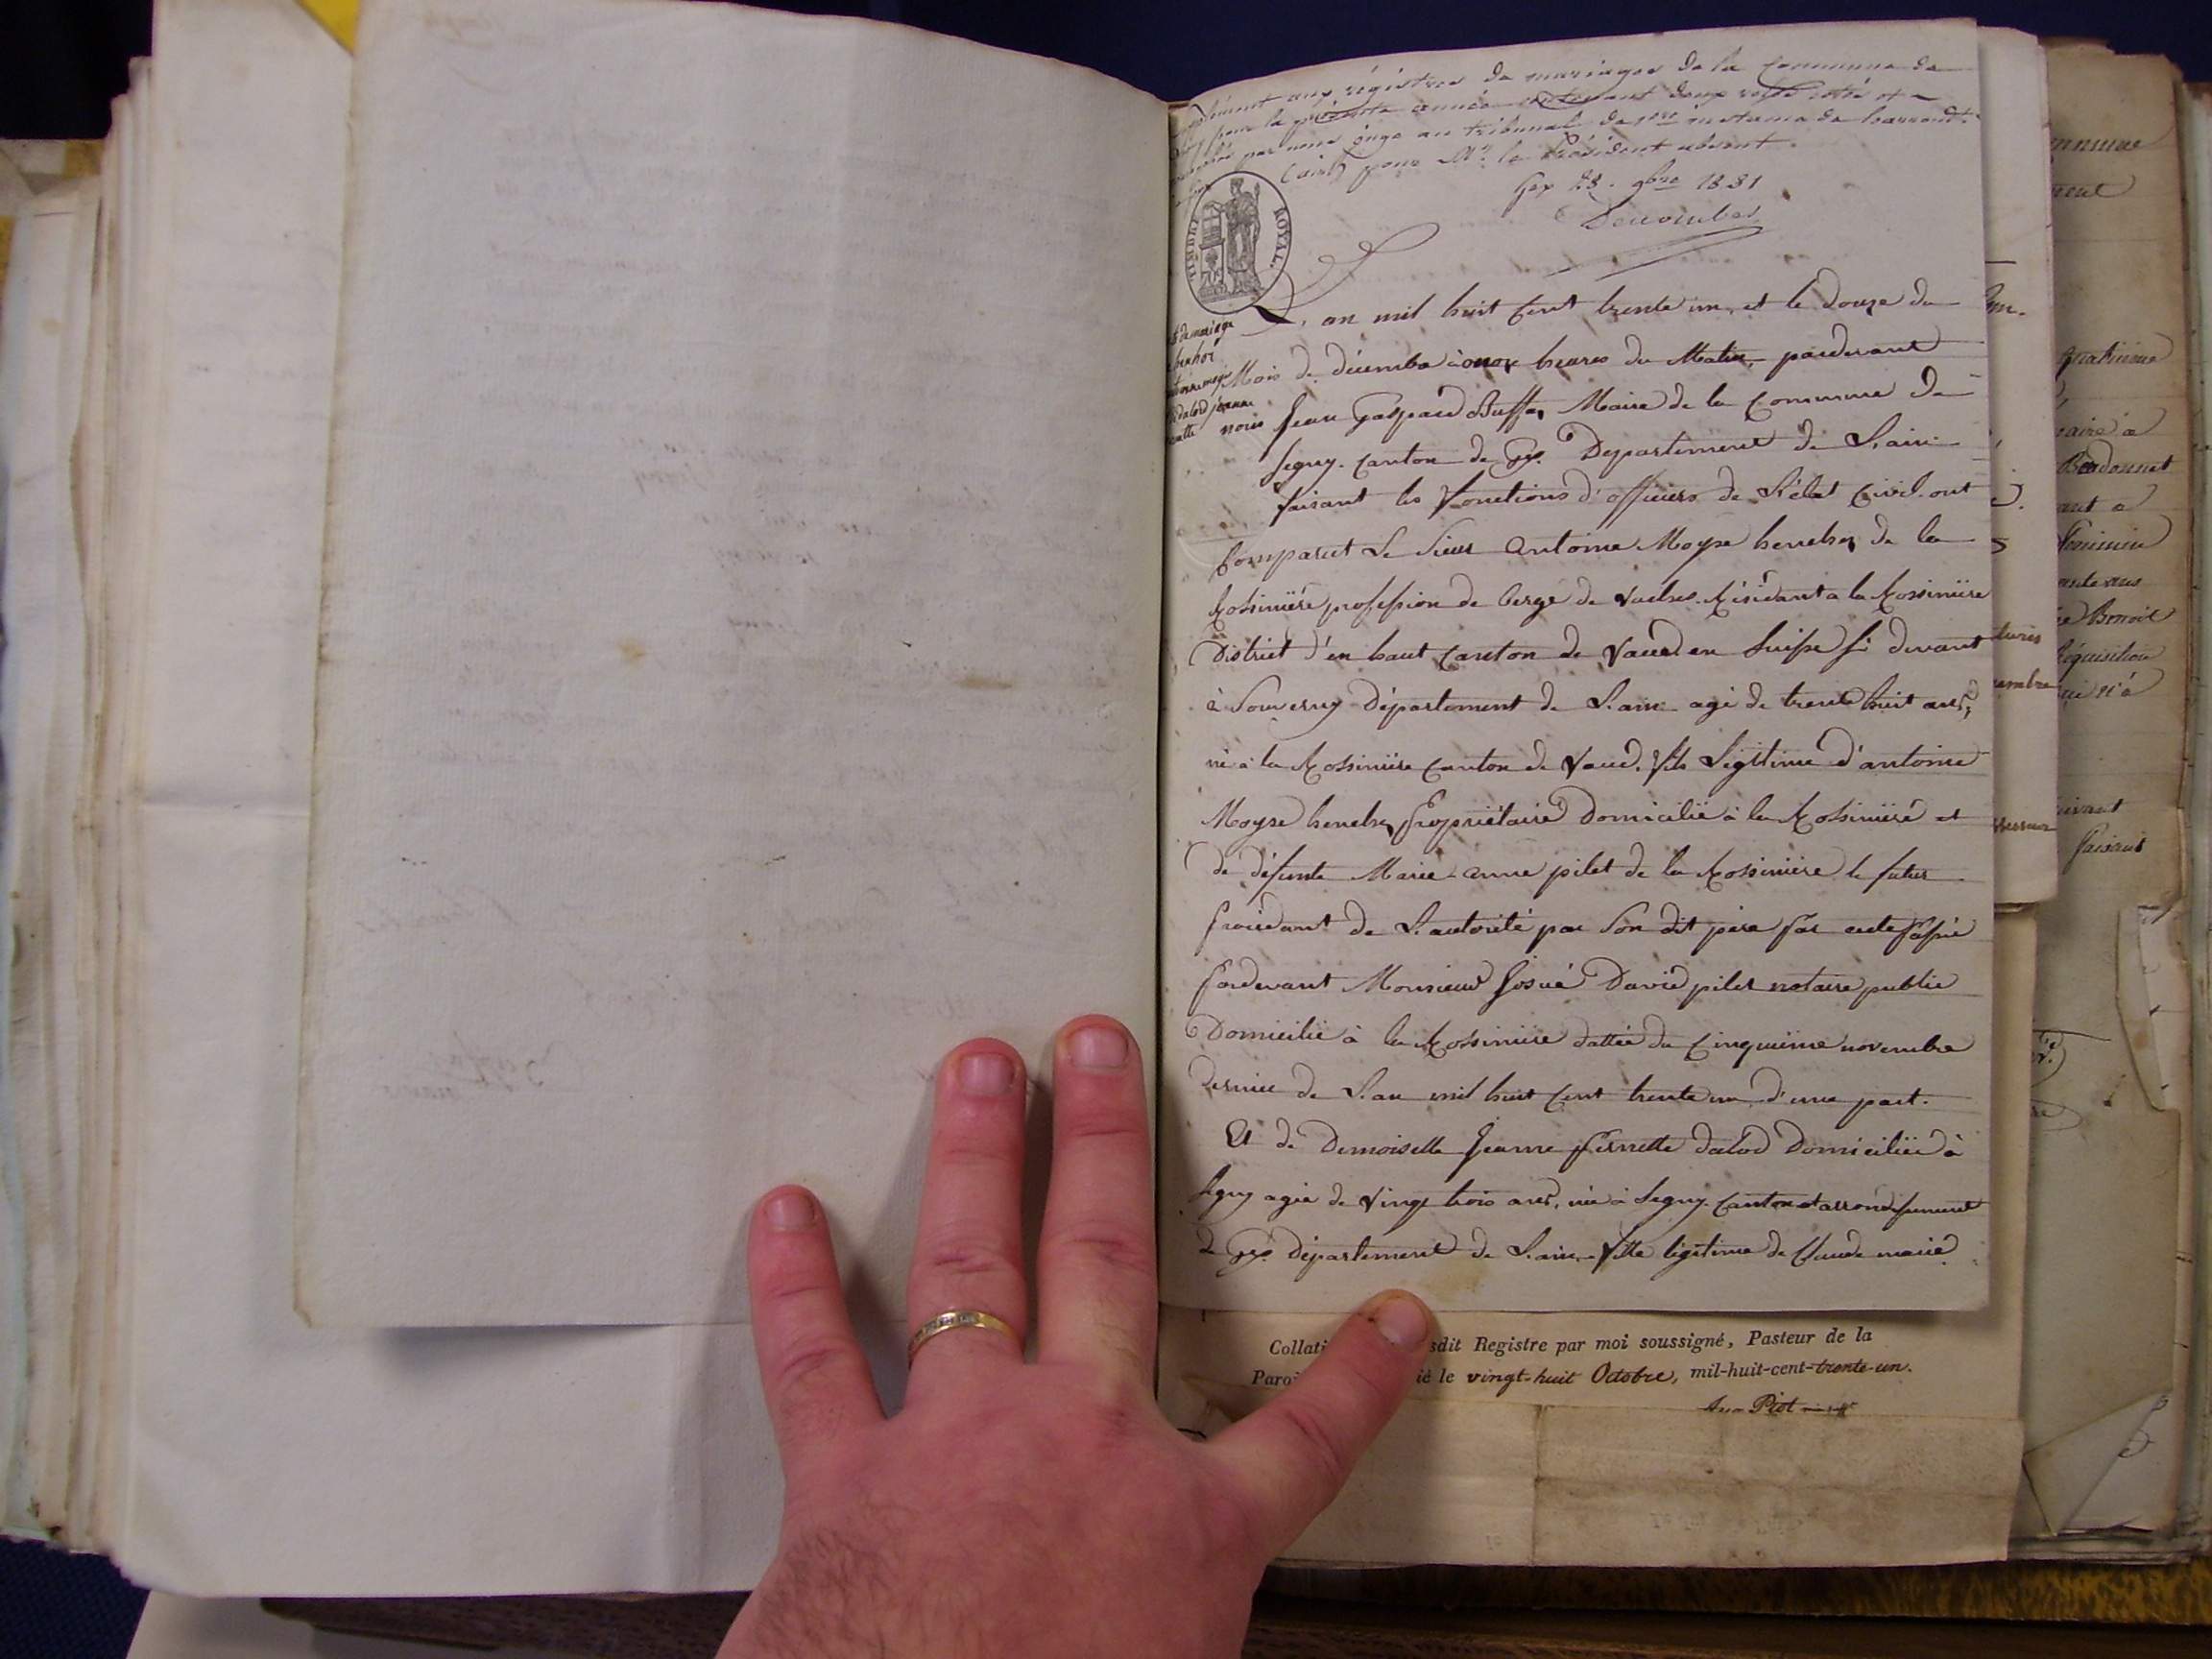 aux régistres de mariages de la Commune de
pour la présente année contenant deux rolles coté et
par nous juge au tribunal de 1ere instance de
pour Mr. le Président absent.
Gex 9bre 1831
TIMBRE ROYAL.
L'an mil huit Cent trente un, et le douze du
Mois de décembre à onze heures du Matin, pardevant
nous Jean Gaspard Buffa, Maire de la Commune de
Segny. Canton de Gex. Departement de L'ain
faisant les fonctions d'officiers de L'état Civil. ont
Comparut Le Sieur Antoine Moyse henchoz de la
Rossinière profession de berge de vaches. Résidant a la Rossinière
District d'en haut Canton de Vaud en Suisse Ci devant
à Sauverny Département de L'ain agé de trente huit ans,
né à la Rossinière Canton de Vaud, fils Légitime d'antoine
Moyse henchoz Propriétaire Domicilié à la Rossinière et
de défunte Marie-anne pilet de la Rossinière le futur
procédant de L'autorité par Son dit père par acte passé
Pardevant Monsieur Josué David pilet notaire public
Domicilié à la Rossinière dattée du Cinquième novembre
dernier de L'an mil huit Cent trente un d'une part.
Et de Demoiselle Jeanne pernette dalod Domiciliée à
Segny agée de Vingt trois ans, née à Segny. Canton et arrondissement
de Gex. Département de L'ain. fille légitime de Claude marie
de mariage
henhoz
dalod jeanne
Collati sdit Registre par moi soussigné, Pasteur de la
Paroi ié le vingt-huit Octobre, mil-huit-cent-trente-un.
Piot
Benoit
Réquisition